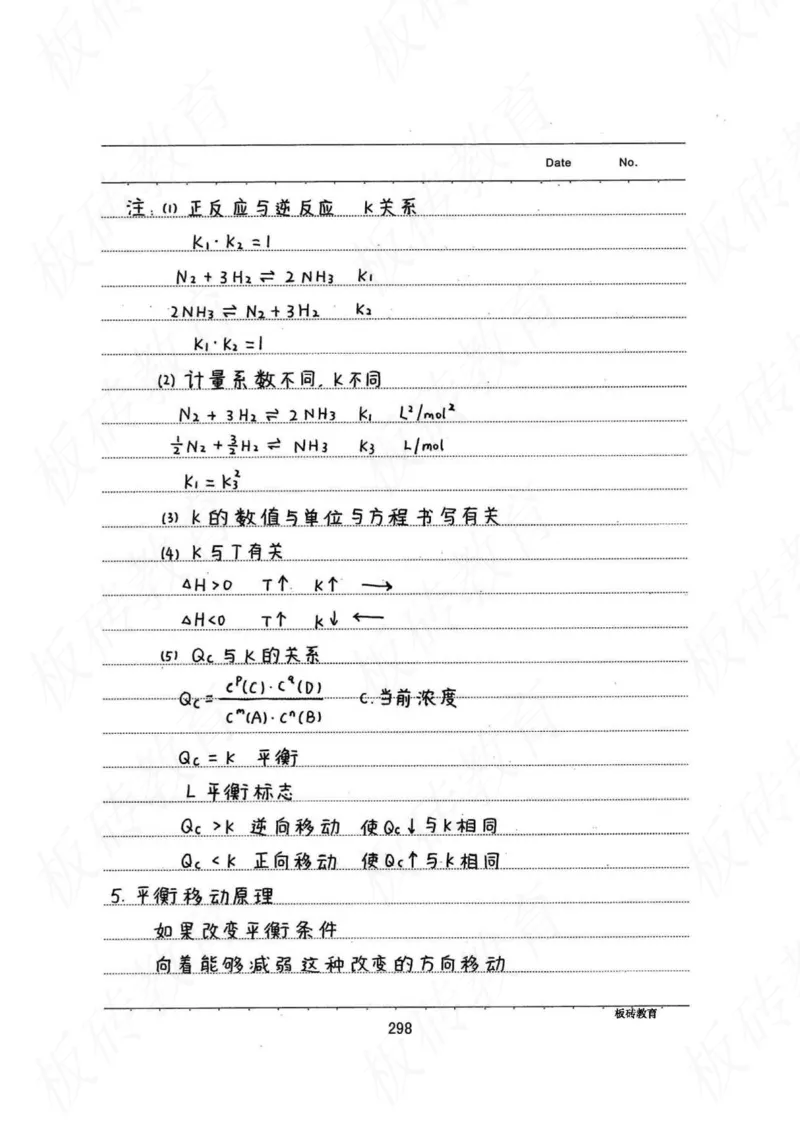 Date No.
注：(1) 正反应与逆反应 K关系
K₁·K₂ =1
N₂ + 3H₂ ⇌ 2NH₃ K₁
2NH₃ ⇌ N₂+3H₂ K₂
K₁·K₂ =1
(2) 计量系数不同，K不同
N₂ + 3H₂ ⇌ 2NH₃ K₁ L²/mol²
½N₂ + 3/2H₂ ⇌ NH₃ K₃ L/mol
K₁ = K₃²
(3) K的数值与单位与方程书写有关
(4) K与T有关
△H>0 T↑ K↑ →
△H<0 T↑ K↓ ←
(5) Qc与K的关系
Qc = c^p(C)·c^q(D) / c^m(A)·c^n(B) C.当前浓度
Qc = K 平衡
L 平衡标志
Qc >K 逆向移动 使Qc↓与K相同
Qc <K 正向移动 使Qc↑与K相同
5. 平衡移动原理
如果改变平衡条件
向着能够减弱这种改变的方向移动
板砖教育
298